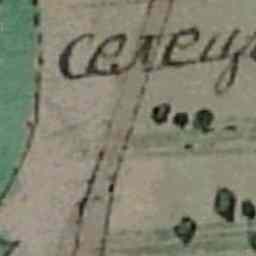 селец